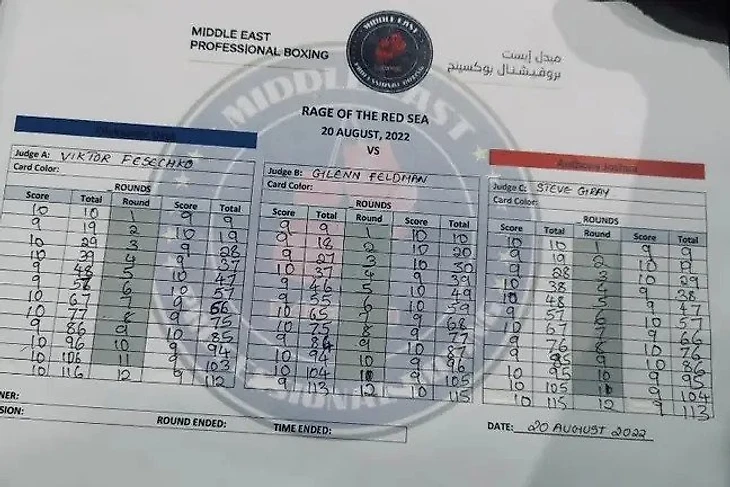 MIDDLE EAST
PROFESSIONAL BOXING
MIDDLE EAST
PROFESSIONAL BOXING
ميدل إيست
بروفيشنال بوكسينج
RAGE OF THE RED SEA
20 AUGUST, 2022
VS
Anthony Joshua
Judge A: VIKTOR FESECHKO
Card Color:
ROUNDS
Score Total Round Score Total
10 10 1 9 9
9 19 2 10 19
10 29 3 9 28
10 39 4 9 37
9 48 5 10 47
9 57 6 10 57
10 67 7 9 66
10 77 8 9 75
9 86 9 10 85
10 96 10 9 94
10 106 11 9 103
10 116 12 9 112
Judge B: GLENN FELDMAN
Card Color:
ROUNDS
Score Total Round Score Total
9 9 1 10 10
9 18 2 10 20
9 27 3 10 30
10 37 4 9 39
9 46 5 10 49
9 55 6 10 59
10 65 7 9 68
10 75 8 9 77
9 84 9 10 87
10 94 10 9 96
10 104 9 105
9 113 12 10 115
Judge C: STEVE GRAY
Card Color:
ROUNDS
Score Total Round Score Total
10 10 1 9 9
9 19 2 10 19
9 28 3 10 29
10 38 4 9 38
10 48 5 9 47
9 57 6 10 57
10 67 7 9 66
9 76 8 10 76
9 85 9 10 86
10 95 10 9 95
10 105 9 104
10 115 12 9 113
NER:
SION:
ROUND ENDED: TIME ENDED:
DATE: 20 AUGUST 2022